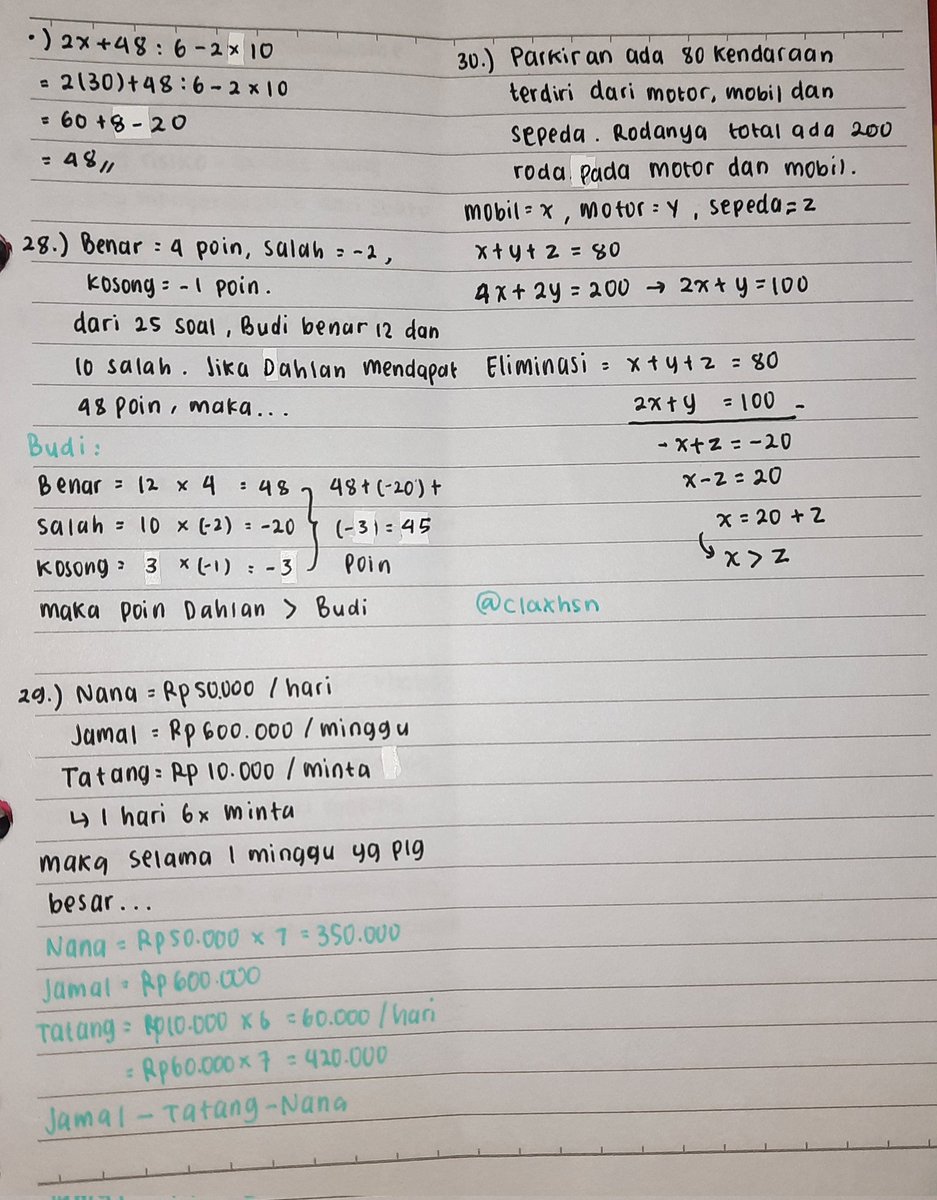 •) 2x+48 : 6-2 x 10
= 2(30)+48 : 6 - 2 x 10
= 60 + 8 - 20
= 48 //
28.) Benar = 4 poin, salah = -2,
kosong = -1 poin.
dari 25 soal, Budi benar 12 dan
10 salah. Jika Dahlan mendapat
48 poin, maka...
Budi:
Benar = 12 x 4 = 48 } 48+(-20)+
Salah = 10 x (-2) = -20 } (-3) = 45
Kosong = 3 x (-1) = -3 } Poin
maka poin Dahlan > Budi
29.) Nana = Rp50.000 / hari
Jamal = Rp 600.000 / minggu
Tatang = Rp 10.000 / minta
↳ 1 hari 6x minta
maka selama 1 minggu yg plg
besar...
Nana = Rp50.000 x 7 = 350.000
Jamal = Rp 600.000
Tatang = Rp10.000 x 6 = 60.000 / hari
= Rp60.000 x 7 = 420.000
Jamal - Tatang - Nana
30.) Parkiran ada 80 kendaraan
terdiri dari motor, mobil dan
sepeda. Rodanya total ada 200
roda pada motor dan mobil.
mobil = x, motor = y, sepeda = z
x+y+z = 80
4x+2y = 200 → 2x+y = 100
Eliminasi = x+y+z = 80
2x+y = 100 -
-x+z = -20
x-z = 20
x = 20 + z
↳ x > z
@claxhsn